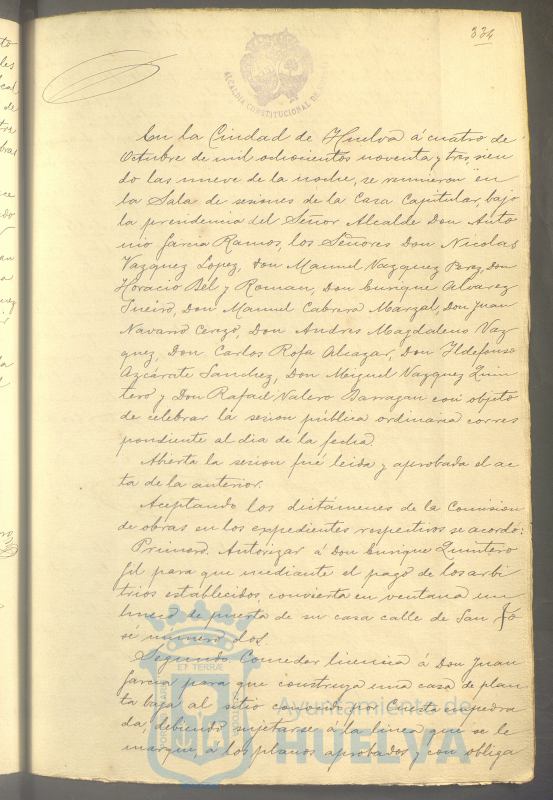 334
ALCALDIA CONSTITUCIONAL DE
En la Ciudad de Huelva á cuatro de
Octubre de mil ochocientos noventa y tres, sien
do las nueve de la noche, se reunieron en
la Sala de sesiones de la Casa Capitular, bajo
la presidencia del Señor Alcalde Don Anto
nio Garcia Ramos, los Señores Don Nicolas
Vazquez Lopez, Don Manuel Vazquez Perez, Don
Horacio Bel y Roman, Don Enrique Alvarez
Don Manuel Cabrera Marzal, Don Juan
Navarro Cerezo, Don Andres Magdaleno Vaz
quez, Don Carlos Rofa Alcazar, Don Ildefonso
Azcárate Sanchez, Don Miguel Vazquez Quin
tero y Don Rafael Valero Barragan con objeto
de celebrar la sesion pública ordinaria corres
pondiente al dia de la fecha.
Abierta la sesion fué leida y aprobada el ac
ta de la anterior.
Aceptando los dictámenes de la Comision
de obras en los expedientes respectivos se acordó:
Primero. Autorizar á Don Enrique Quintero
Gil para que mediante el pago de los arbi
trios establecidos, convierta en ventana un
hueco de puerta de su casa calle de San Jo
sé número dos.
Segundo. Conceder licencia á Don Juan
Garcia para que construya una casa de plan
ta baja al sitio conocido por Cuesta empedra
da, debiendo sujetarse á la linea que se le
marque, á los planos aprobados y con obliga
Ayuntamiento de
HUELVA
ET TERRÆ